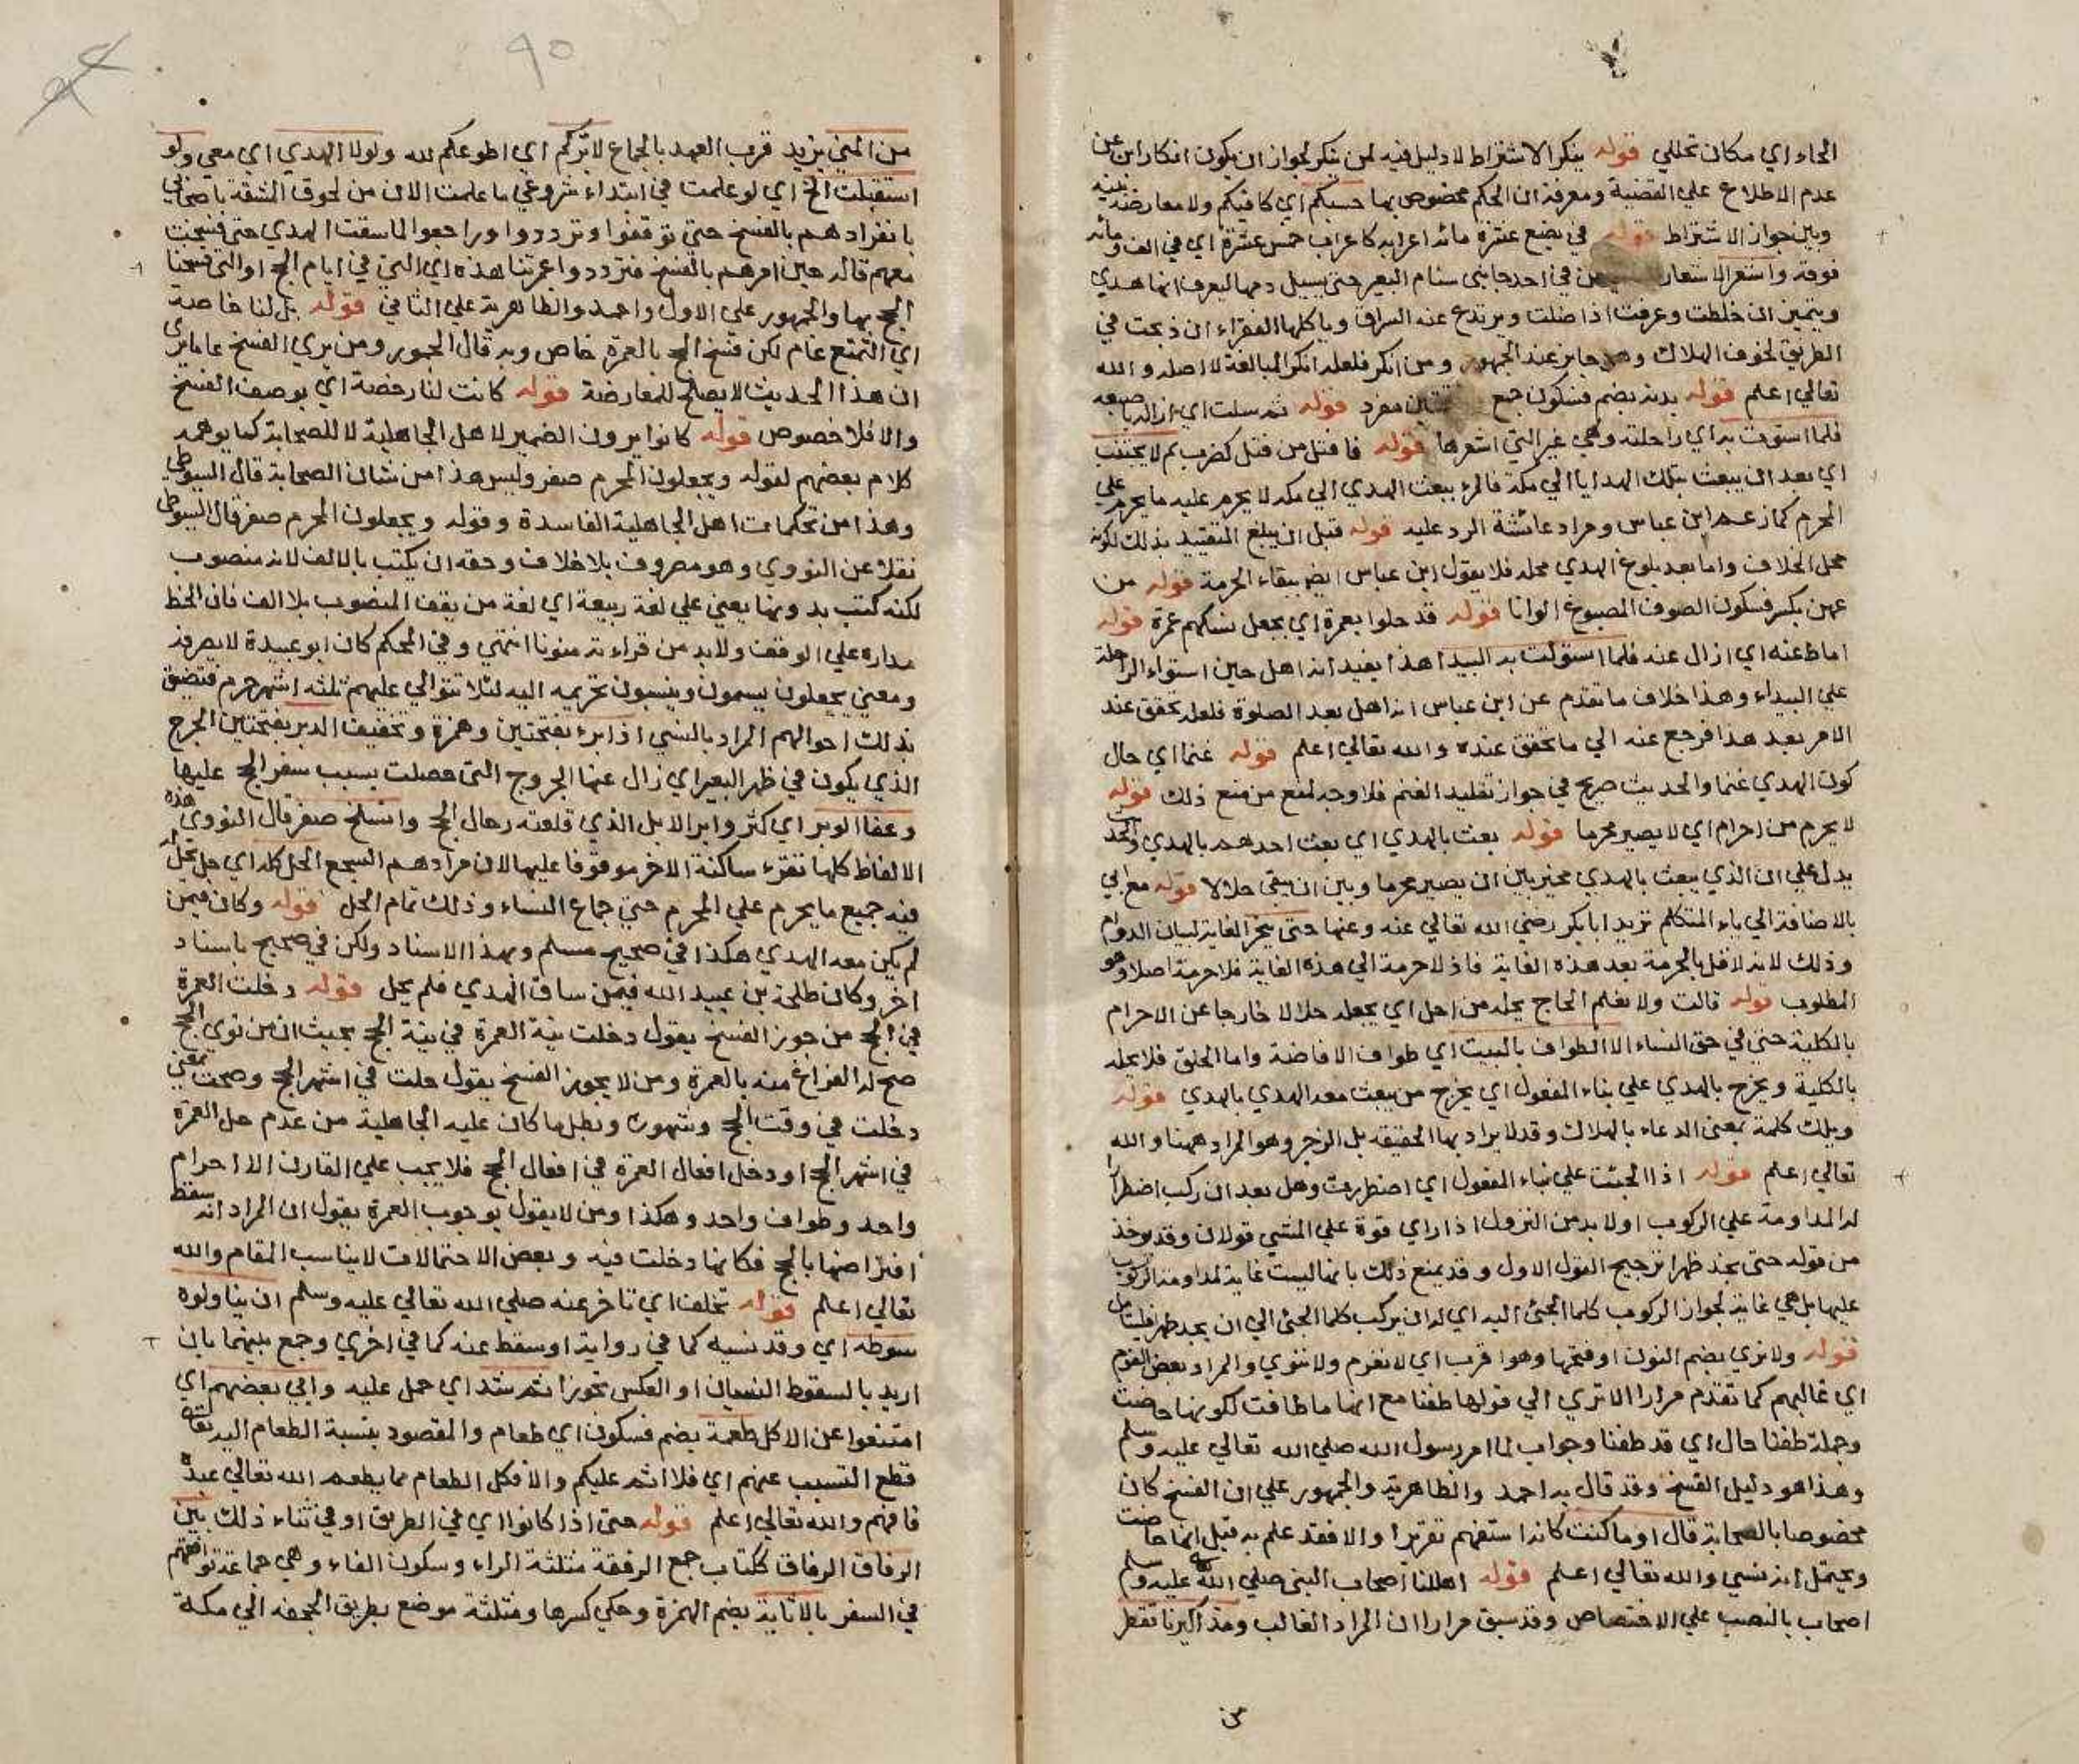 الحاء اي مكان تحللي قوله ينكر الاشتراط لا دليل فيه لمن ينكر لجواز ان يكون انكار ابن عمر عن
عدم الاطلاع علي القضية ومعرفة ان الحكم مخصوص بها حسبكم اي كافيكم ولا معارضة بينه
وبين جواز الاشتراط قوله في بضع عشرة مائة اعرابه كاعراب خمس عشرة اي في الف ومائة
فوقه واشعر الاشعار في احد جانبي سنام البعير حتى يسيل دمها ليعرف انها هدي
ويتميز ان خلطت وعرفت اذا ضلت ويرتدع عنه السراق وياكلها الفقراء ان ذبحت في
الطريق لخوف الهلاك وهو جايز عند الجمهور ومن انكر فلعله انكر المبالغة لا اصله والله
تعالي اعلم قوله بدنه بضم فسكون جمع مفرد قوله ثم سلت اي ازاله باصبعه
فلما استوت به اي راحلته وهي غير التي اشعرها قوله فافتل من فتل كضرب ثم لا يجتنب
اي بعد ان يبعث بتلك الهدايا الي مكة فالمرء يبعث الهدي الي مكه لا يحرم عليه ما يحرم علي
المحرم كما زعمه ابن عباس ومراد عائشة الرد عليه قوله قبل ان يبلغ التقييد بذلك لكونه
محل الخلاف واما بعد بلوغ الهدي محله فلا يقول ابن عباس ايضا ببقاء الحرمة قوله من
عهن بكسر فسكون الصوف المصبوغ الوانا قوله قد حلوا بعمرة اي بجعل نسكهم عمرة قوله
اماط عنه اي ازال عنه فلما استوت به البيدا هذا يفيد انه اهل حين استواء الراحلة
علي البيداء وهذا خلاف ما تقدم عن ابن عباس انه اهل بعد الصلوة فلعله تحقق عنده
الامر بعد هذا فرجع عنه الي ما تحقق عنده والله تعالي اعلم قوله غنما اي حال
كون الهدي غنما والحديث صريح في جواز تقليد الغنم فلا وجه لمنع من منع ذلك قوله
لا يحرم من احرام اي لا يصير محرما قوله بعث بالهدي اي بعث احدهم بالهدي والحديث
يدل علي ان الذي يبعث بالهدي مخير بين ان يصير محرما وبين ان يبقي حلالا قوله مع ابي
بالاضافة الي ياء المتكلم تريد ابا بكر رضي الله تعالي عنه وعنها حتى ينحر الغاية لبيان الدوام
وذلك لانه لا قائل بالحرمة بعد هذه الغاية فاذ لا حرمة الي هذه الغاية فلا حرمة اصلا وهو
المطلوب قوله قالت ولا نعلم الحاج يحله من احل اي يجعله حلالا خارجا عن الاحرام
بالكلية حتى في حق النساء الا الطواف بالبيت اي طواف الافاضة واما الحلق فلا يحله
بالكلية ويخرج بالهدي علي بناء المفعول اي يخرج من يبعث معه الهدي بالهدي قوله
ويلك كلمة بمعنى الدعاء بالهلاك وقد لا يراد بها الحقيقة بل الزجر وهو المراد ههنا والله
تعالي اعلم قوله اذا الجئت علي بناء المفعول اي اضطررت وهل بعد ان ركب اضطرارا
له المداومة علي الركوب اولا بد من النزول اذا راي قوة علي المشي قولان وقد يوخذ
من قوله حتى يجد ظهرا ترجيح القول الاول وقد يمنع ذلك بانها ليست غاية لمداومة الركوب
عليها بل هي غاية لجواز الركوب كلما الجئ اليه اي له ان يركب كلما الجئ الي ان يجد ظهرا فليتامل
قوله ولا نري بضم النون او فتحها وهو اقرب اي لا نعزم ولا ننوي والمراد بعض القوم
اي غالبهم كما تقدم مرارا الا تري الي قولها طفنا مع انها ما طافت لكونها حاضت
وجملة طفنا حال اي قد طفنا وجواب لما امر رسول الله صلي الله تعالي عليه وسلم
وهذا هو دليل الفسخ وقد قال به احمد والظاهرية والجمهور علي ان الفسخ كان
مخصوصا بالصحابة قال او ما كنت كانه استفهم تقريرا والا فقد علم به قبل انها حاضت
ويحتمل انه نسي والله تعالي اعلم قوله اهللنا اصحاب النبي صلي الله عليه وسلم
اصحاب بالنصب علي الاختصاص وقد سبق مرارا ان المراد الغالب ومذاكيرنا تقطر
من
٩٥
من المني يزيد قرب العهد بالجماع لابركم اي اطوعكم لله ولولا الهدي اي معي ولو
استقبلت الخ اي لو علمت في ابتداء شروعي ما علمت الان من لحوق المشقة باصحابي
بانفرادهم بالفسخ حتى توقفوا وترددوا وراجعوا لما سقت الهدي حتى فسخت
معهم قاله حين امرهم بالفسخ فترددوا عمرتنا هذه اي التي في ايام الحج او التي فسخنا
الحج بها والجمهور علي الاول واحمد والظاهرية علي الثاني قوله بل لنا خاصة
اي التمتع عام لكن فسخ الحج بالعمرة خاص وبه قال الجمهور ومن يري الفسخ عاما يري
ان هذا الحديث لا يصلح للمعارضة قوله كانت لنا رخصة اي بوصف الفسخ
والا فلا خصوص قوله كانوا يرون الضمير لاهل الجاهلية لا للصحابة كما يوهمه
كلام بعضهم لقوله ويجعلون المحرم صفر وليس هذا من شان الصحابة قال السيوطي
وهذا من تحكمات اهل الجاهلية الفاسدة وقوله ويجعلون المحرم صفر قال السيوطي
نقلا عن النووي وهو مصروف بلا خلاف وحقه ان يكتب بالالف لانه منصوب
لكنه كتب بدونها يعني علي لغة ربيعة اي لغة من يقف المنصوب بلا الف فان الخط
مداره علي الوقف ولا بد من قراءته منونا انتهي وفي المحكم كان ابو عبيدة لا يصرفه
ومعني يجعلون يسمون وينسبون تحريمه اليه لئلا تتوالي عليهم ثلثه اشهر حرم فتضيق
بذلك احوالهم المراد بالنسي اذا برء بفتحتين وهمزة وتخفيف الدبر بفتحتين الجرح
الذي يكون في ظهر البعير اي زال عنها الجروح التي حصلت بسبب سفر الحج عليها
وعفا الوبر اي كثر وابر الابل الذي قلعته رحال الحج وانسلخ صفر قال النووي هذه
الالفاظ كلها تقرء ساكنة الاخر موقوفا عليها لان مرادهم السجع الحل كله اي حل يحل له
فيه جميع ما يحرم علي المحرم حتى جماع النساء وذلك تمام الحل قوله وكان فيمن
لم يكن معه الهدي هكذا في صحيح مسلم وبهذا الاسناد ولكن في صحيح باسناد
اخر وكان طلحة بن عبيد الله فيمن ساق الهدي فلم يحل قوله دخلت العمرة
في الحج من جوز الفسخ يقول دخلت نية العمرة في نية الحج بحيث ان من نوي الحج
صح له الفراغ منه بالعمرة ومن لا يجوز الفسخ يقول حلت في اشهر الحج وصحت بمعني
دخلت في وقت الحج وشهوره وبطل ما كان عليه الجاهلية من عدم حل العمرة
في اشهر الحج او دخل افعال العمرة في افعال الحج فلا يجب علي القارن الا احرام
واحد وطواف واحد وهكذا ومن لا يقول بوجوب العمرة يقول ان المراد انه سقط
افتراضها بالحج فكانها دخلت فيه وبعض الاحتمالات لا يناسب المقام والله
تعالي اعلم قوله تخلف اي تاخر عنه صلي الله تعالي عليه وسلم ان يناولوه
سوطه اي وقد نسيه كما في رواية او سقط عنه كما في اخري وجمع بينهما بان
اريد بالسقوط النسيان او العكس تجوزا ثم شد اي حمل عليه وابي بعضهم اي
امتنعوا عن الاكل طعمة بضم فسكون اي طعام والمقصود بنسبة الطعام اليه تعالي
قطع التسبب عنهم اي فلا اثم عليكم والا فكل الطعام مما يطعمه الله تعالي عبده
فافهم والله تعالي اعلم قوله حتى اذا كانوا اي في الطريق او في ثناء ذلك بين
الرفاق الرفاق ككتاب جمع الرفقة مثلثة الراء وسكون الفاء وهي جماعة توافقهم
في السفر بالاثاية بضم الهمزة وحكي كسرها ومثلثة موضع بطريق الجحفه الي مكة